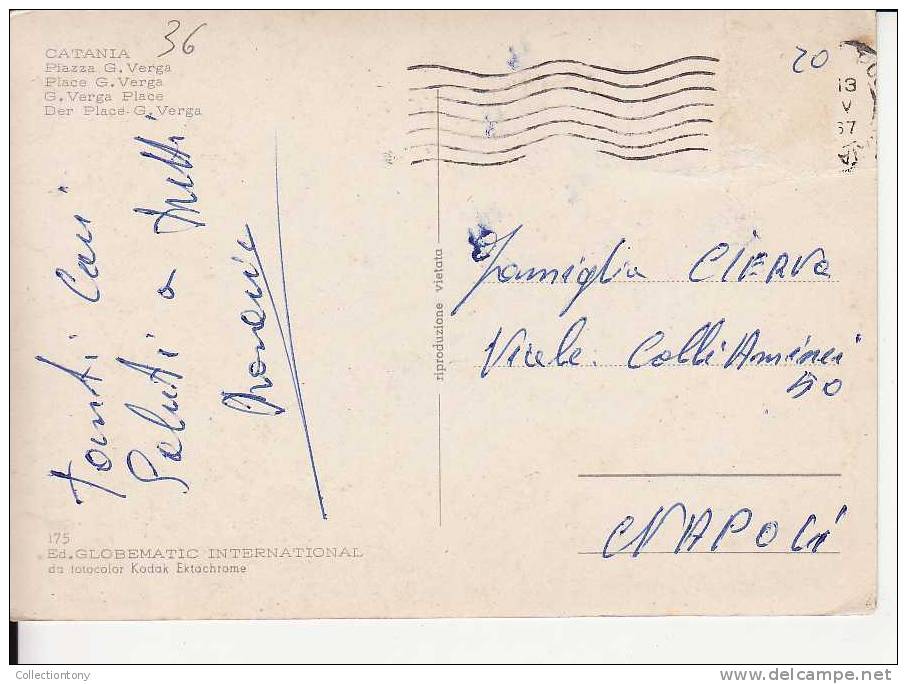 CATANIA
Piazza G. Verga
Place G. Verga
G. Verga Place
Der Place G. Verga
36
20
13
V
67
Tanti Cari
Saluti a tutti
riproduzione vietata
Famiglia CIERVO
Viale Colli Aminei
50
NAPOLI
175
Ed. GLOBEMATIC INTERNATIONAL
da fotocolor Kodak Ektachrome
Collectiontony
delcampe.net